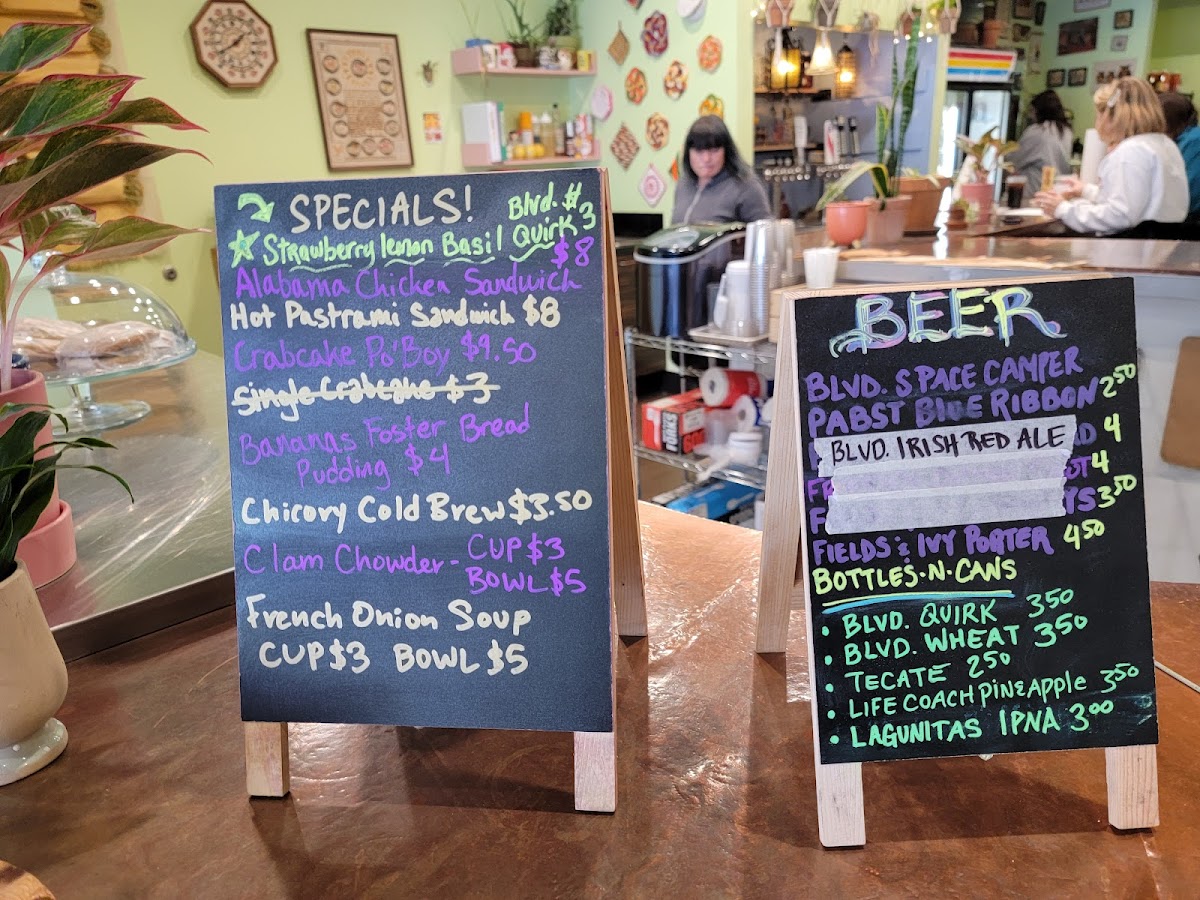 SPECIALS!
Blvd. #
Strawberry lemon Basil Quirk 3
$8
Alabama Chicken Sandwich
Hot Pastrami Sandwich $8
Crabcake Po'Boy $9.50
Single Crabcake $3
Bananas Foster Bread
Pudding $4
Chicory Cold Brew $3.50
Clam Chowder - CUP $3
BOWL $5
French Onion Soup
CUP $3 BOWL $5
BEER
BLVD. SPACE CAMPER
PABST BLUE RIBBON 2⁵⁰
BLVD. IRISH RED ALE
4
4
3⁵⁰
FIELDS & IVY PORTER 4⁵⁰
BOTTLES-N-CANS
• BLVD. QUIRK 3⁵⁰
• BLVD. WHEAT 3⁵⁰
• TECATE 2⁵⁰
• LIFE COACH PINEAPPLE 3⁵⁰
• LAGUNITAS IPNA 3⁰⁰